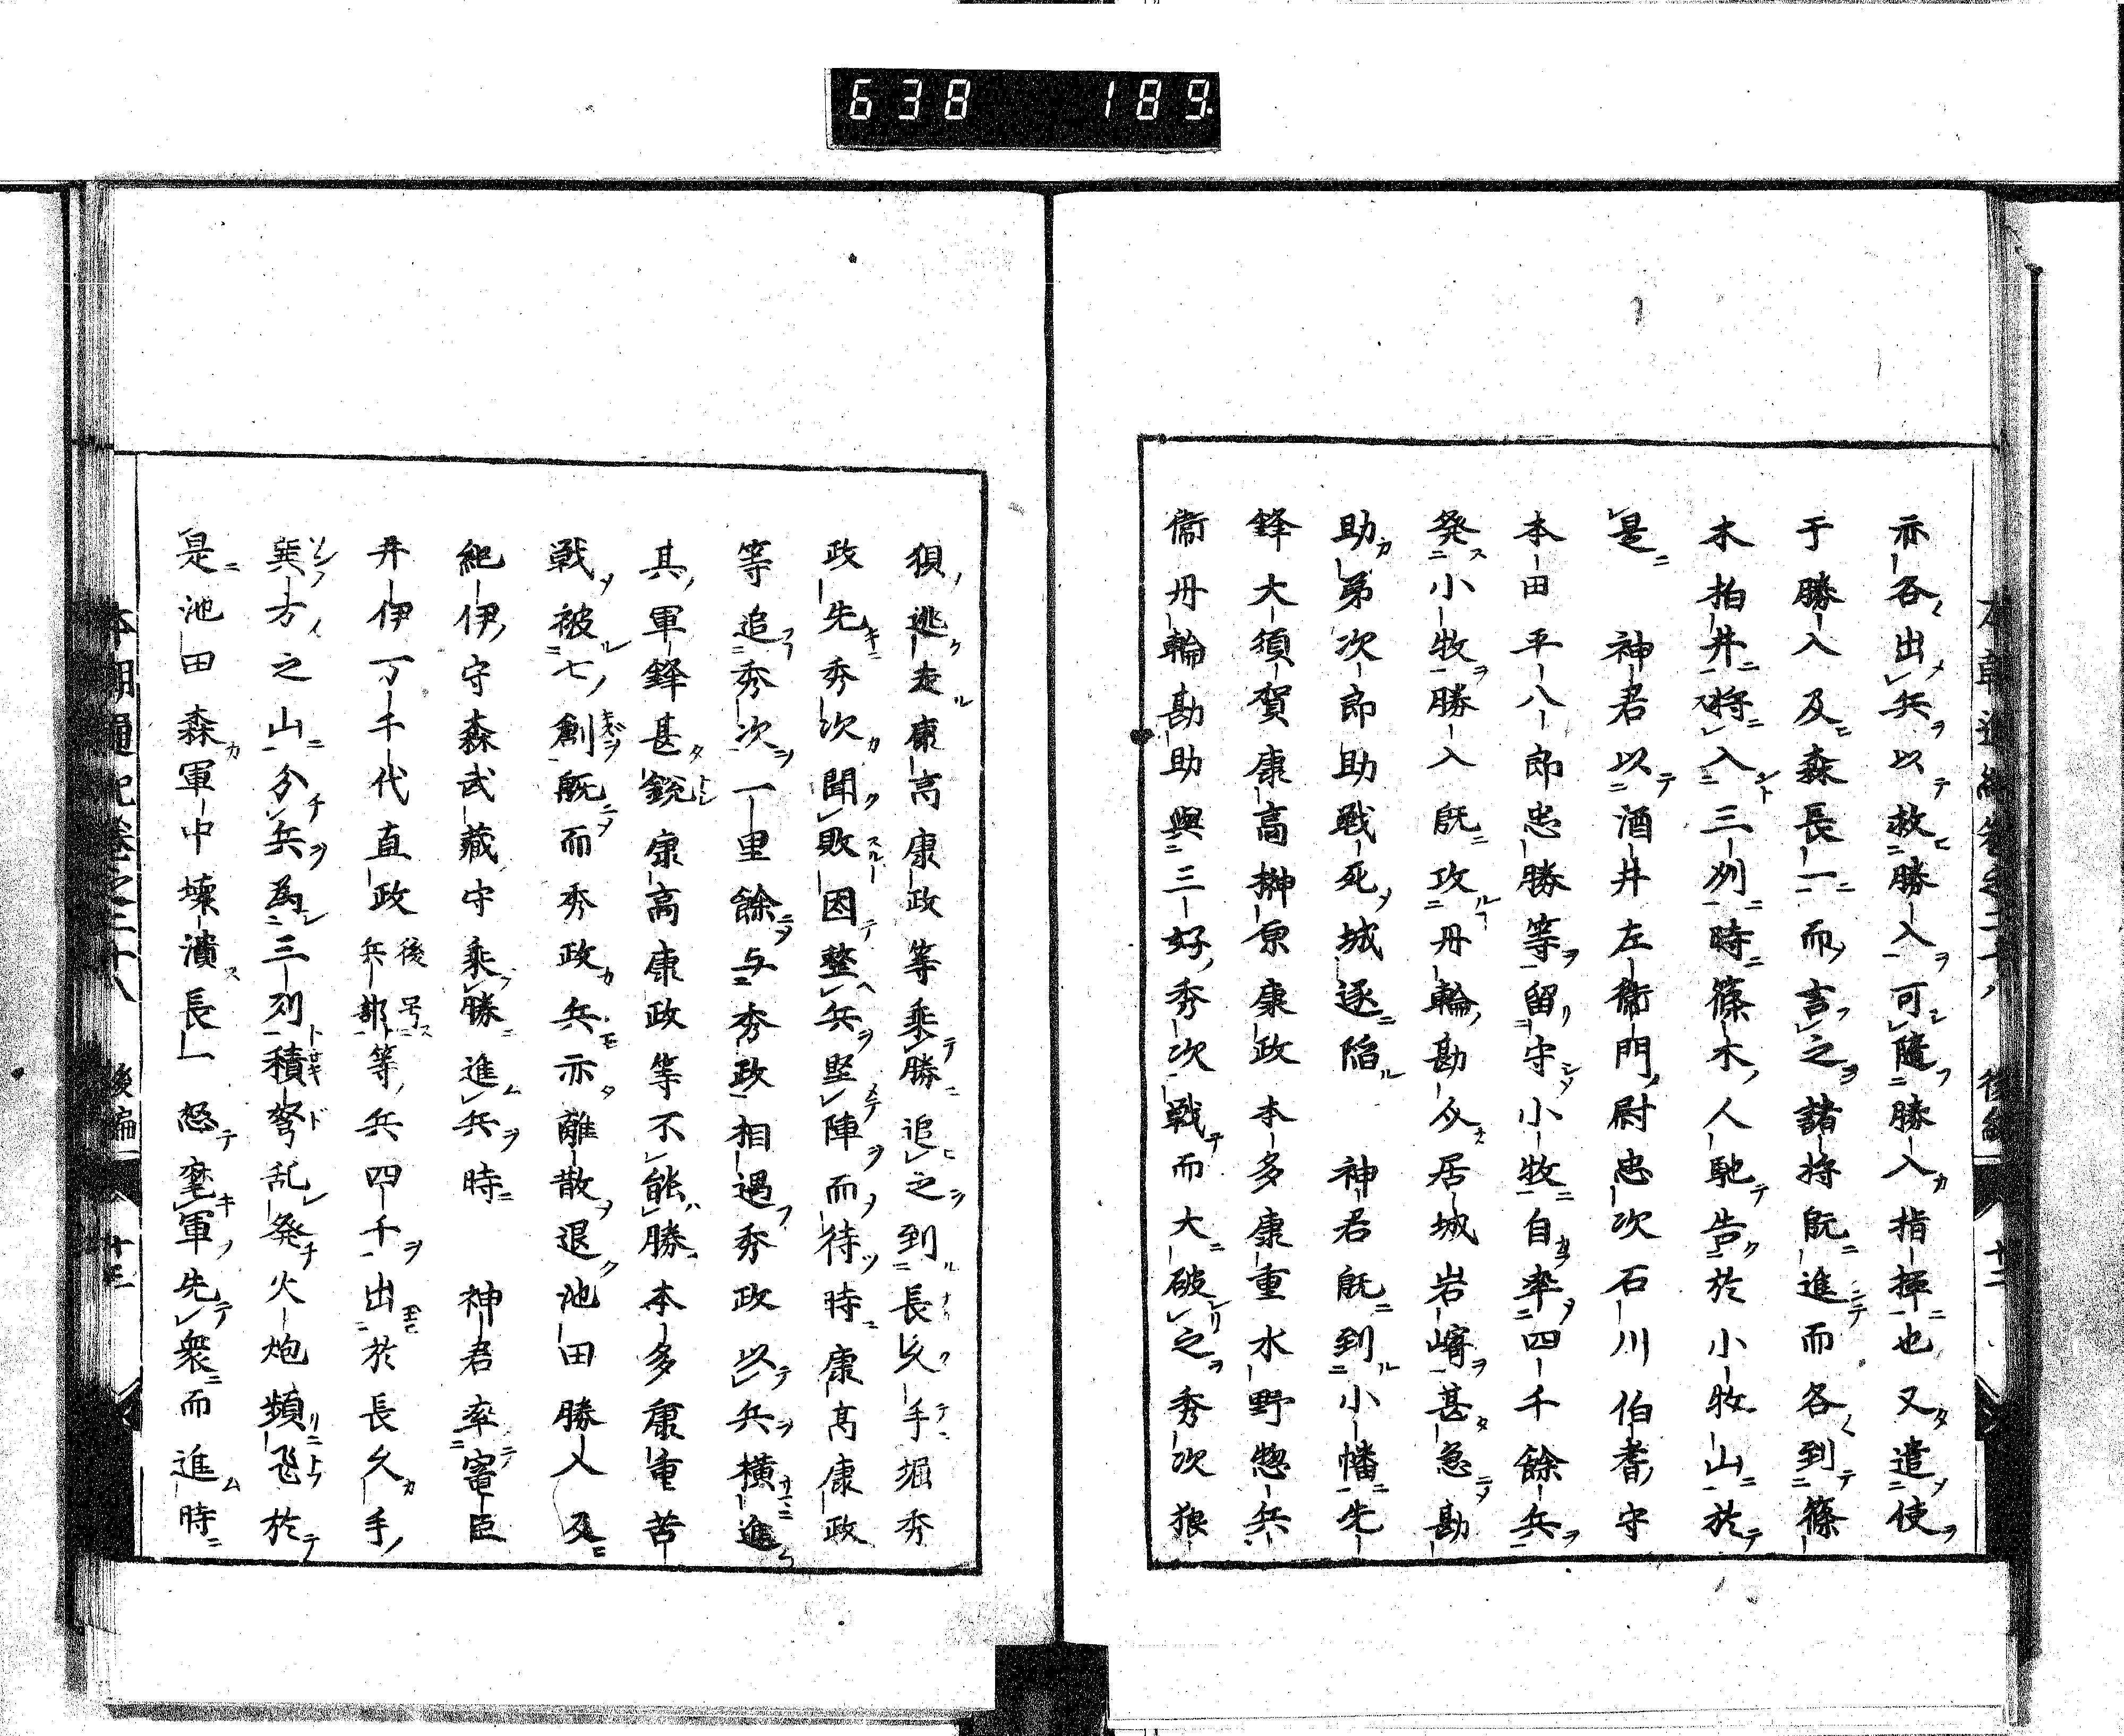 638 189.
亦各出兵以救勝入可隨勝入指揮也又遣使
于勝入及森長一而言之諸将既進而各到篠
木拍井将入三列時篠木人馳告於小牧山於
是　神君以酒井左衛門尉忠次石川伯耆守
本田平八郎忠勝等留守小牧自率四千餘兵
発小牧勝入既攻丹輪勘介居城岩﨑甚急勘
助弟次郎助戦死城逐陥　神君既到小幡先
鋒大須賀康高榊原康政本多康重水野惣兵
衞丹輪勘助與三好秀次戦而大破之秀次狼
狽逃走康高康政等乘勝追之到長久手堀秀
政先秀次聞敗因整兵堅陣而待時康高康政
等追秀次一里餘与秀政相遇秀政以兵横進
其軍鋒甚鋭康高康政等不能勝本多康重苦
戦被七創既而秀政兵亦離散退池田勝入及
紀伊守森武藏守乘勝進兵時　神君率寵臣
井伊万千代直政後号兵部等兵四千出於長久手
巽方之山分兵為三列積弩乱発火炮頻飛於
是池田森軍中壊潰長一怒麾軍先衆而進時
本朝通紀巻之二十八　後編　十三